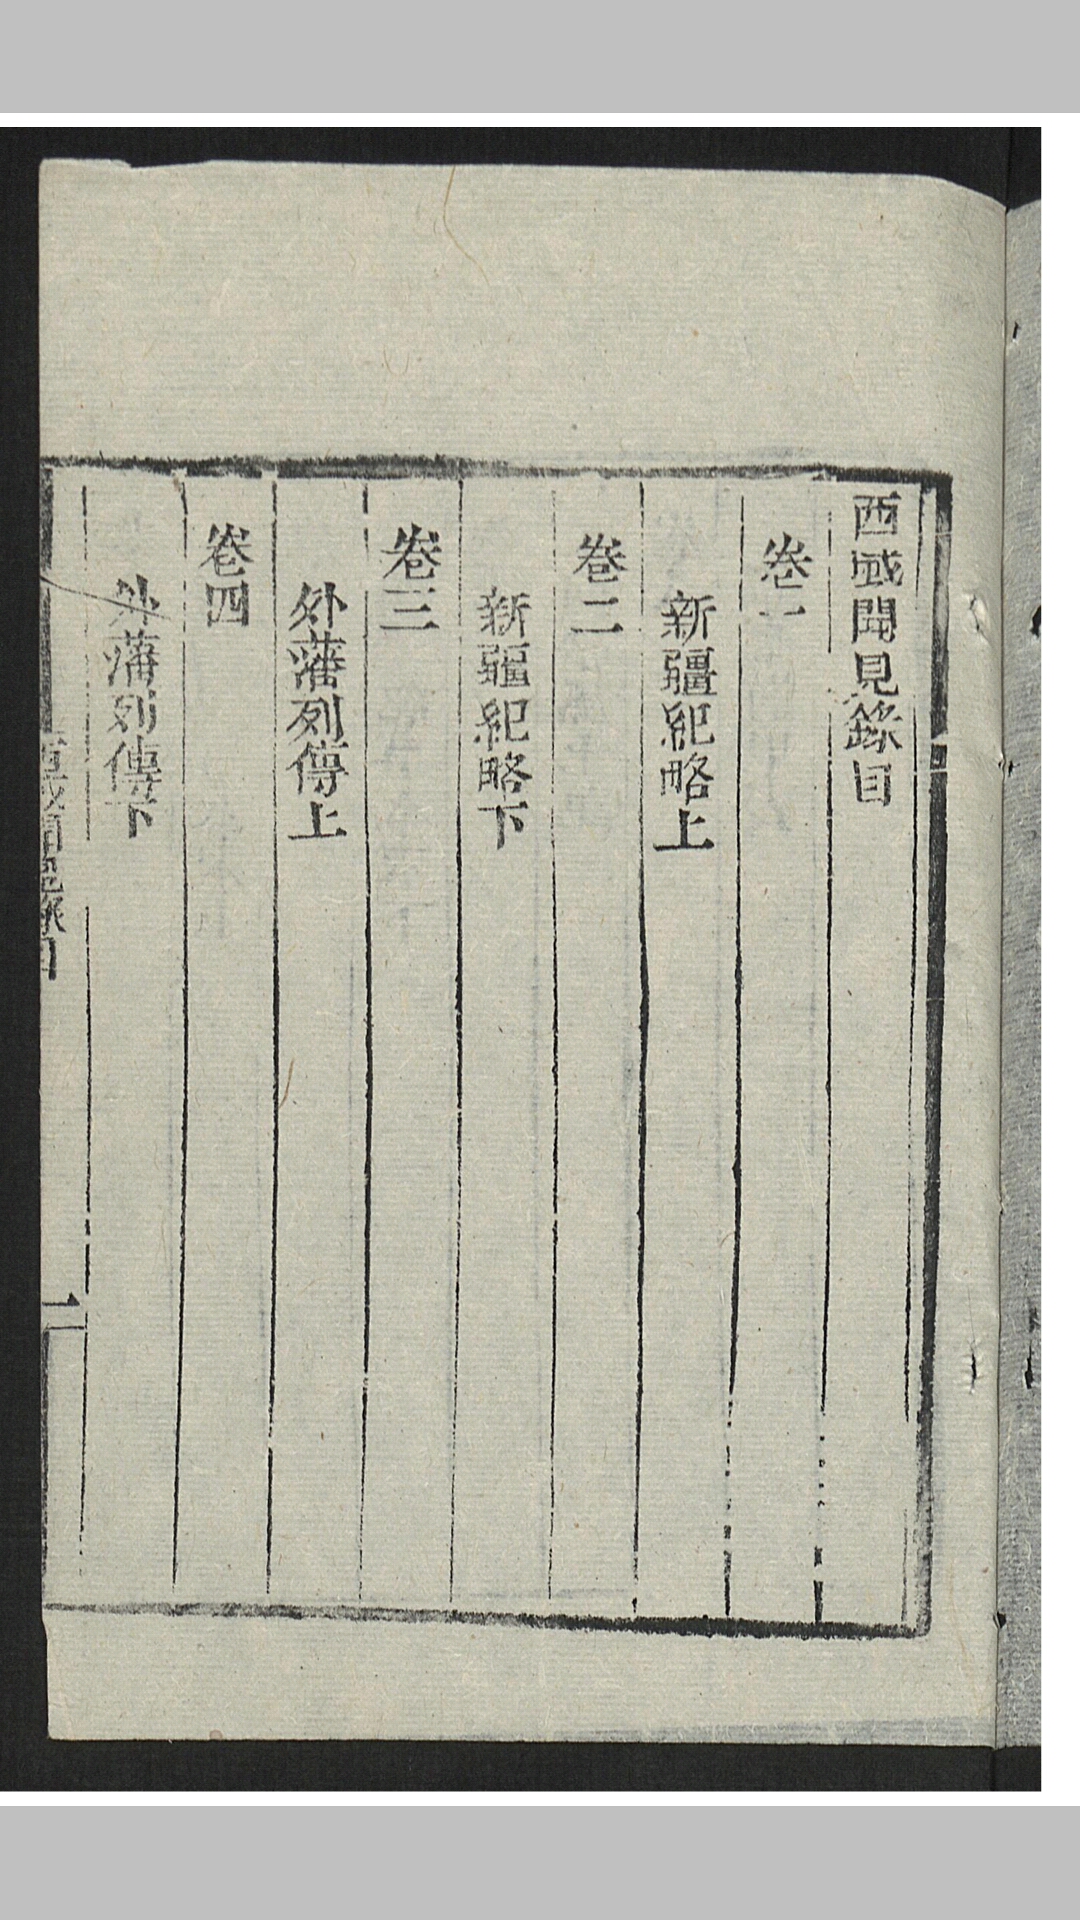 西域聞見錄目
卷一
新疆紀略上
卷二
新疆紀略下
卷三
外藩列傳上
卷四
外藩列傳下
西域聞見錄目